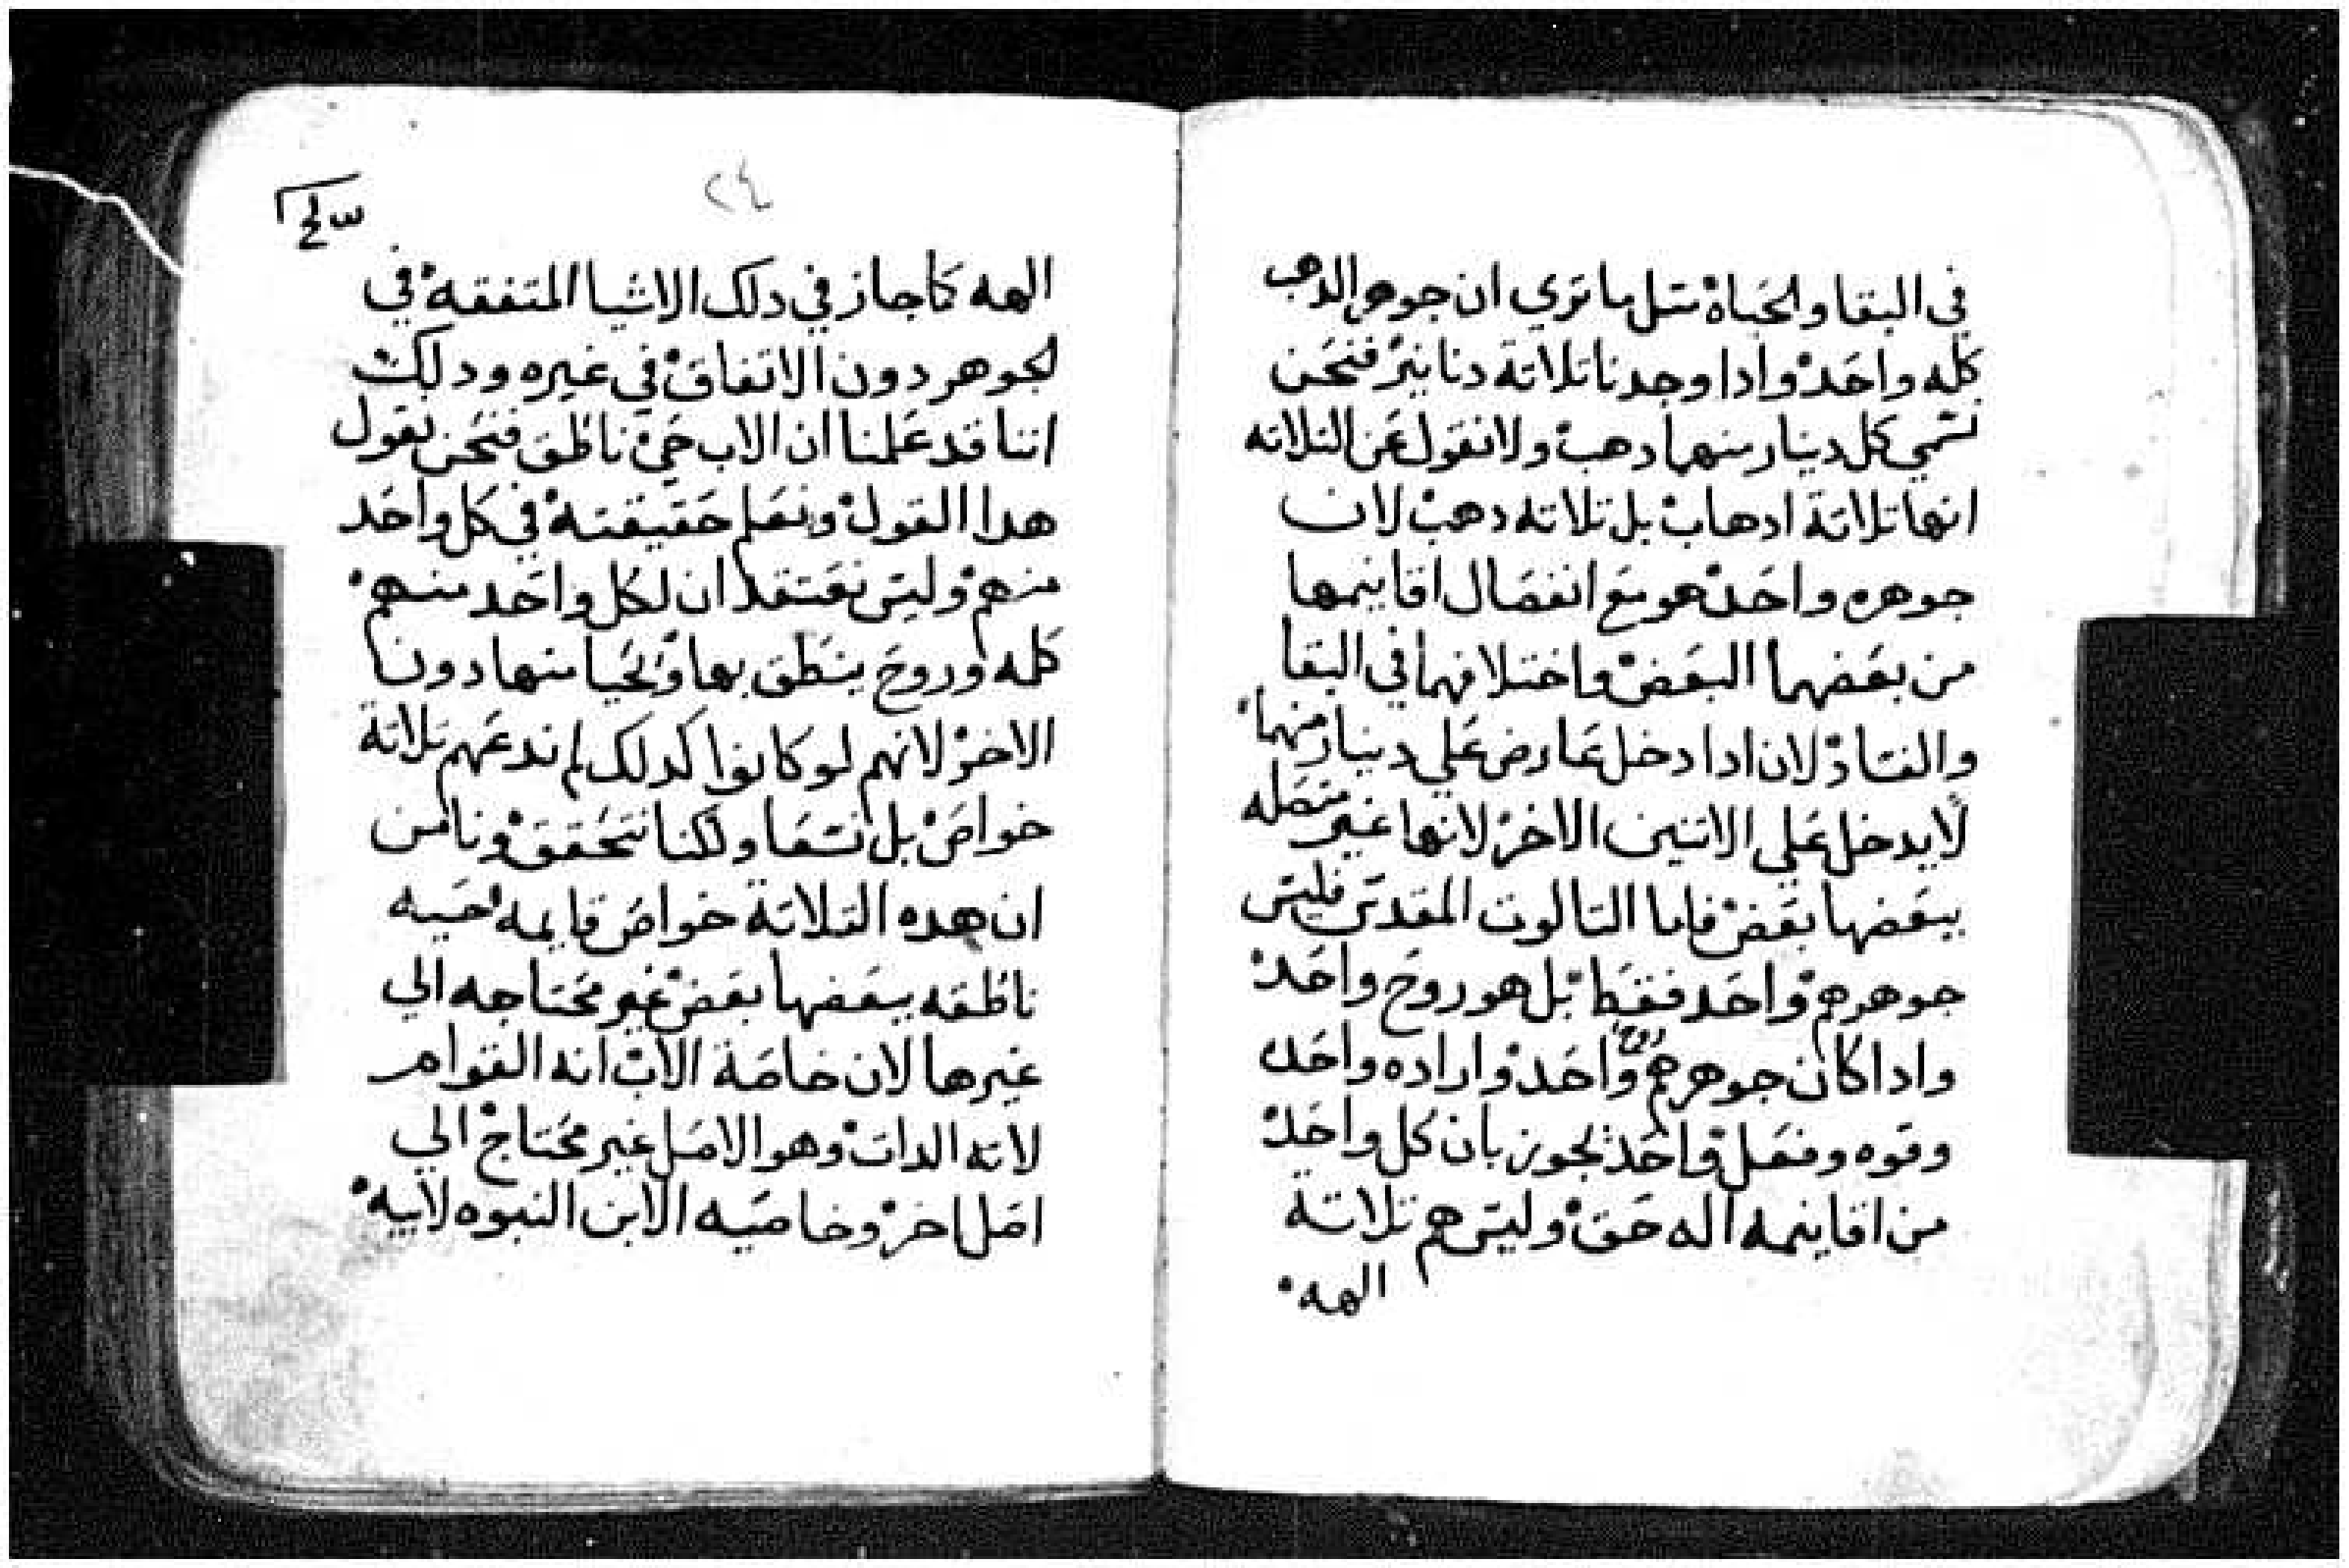 في البقا والحياة متل ما تري ان جوهر الدهب
كله واحد وادا وجدنا تلاتة دنانير فنحن
نسمي كل دينار منهما دهب ولا نقول عن التلاته
انها تلاتة ادهاب بل تلاته دهب لان
جوهره واحد هو مع انفصال اقانيمها
من بعضهما البعض واختلافهما في البقا
والفساد لان ادا دخل عارض علي دينار منهما
لا يدخل علي الاتنين الاخر لانها غير متصله
ببعضها بعض فاما التالوت المقدس فليس
جوهرهم واحد فقط بل هو روح واحد
وادا كان جوهرهم روح واحد واراده واحده
وقوه وفعل واحد نجوز بان كل واحد
من اقانيمه اله حق وليس هم تلاتة
الهه
٢٤
الهه كما جاز في دلك الاشيا المتفقه في
الجوهر دون الاتفاق في غيره ودلك
اننا قد علمنا ان الاب حي ناطق فنحن نقول
هدا القول ونعلم حقيقته في كل واحد
منهم وليس نعتقد ان لكل واحد منهم
كلمه وروح ينطق بها ويحيا منها دون
الاخر لانهم لو كانوا كدلك لم ندعهم تلاتة
خواص بل تسعا ولكنا نتحقق ونامن
ان هده التلاتة خواص قايمه حييه
ناطقه ببعضها بعض غير محتاجه الي
غيرها لان خاصة الاب انه القوام
لانه الدات وهو الاصل غير محتاج الي
اصل اخر وخاصيه الابن البنوه لابيه